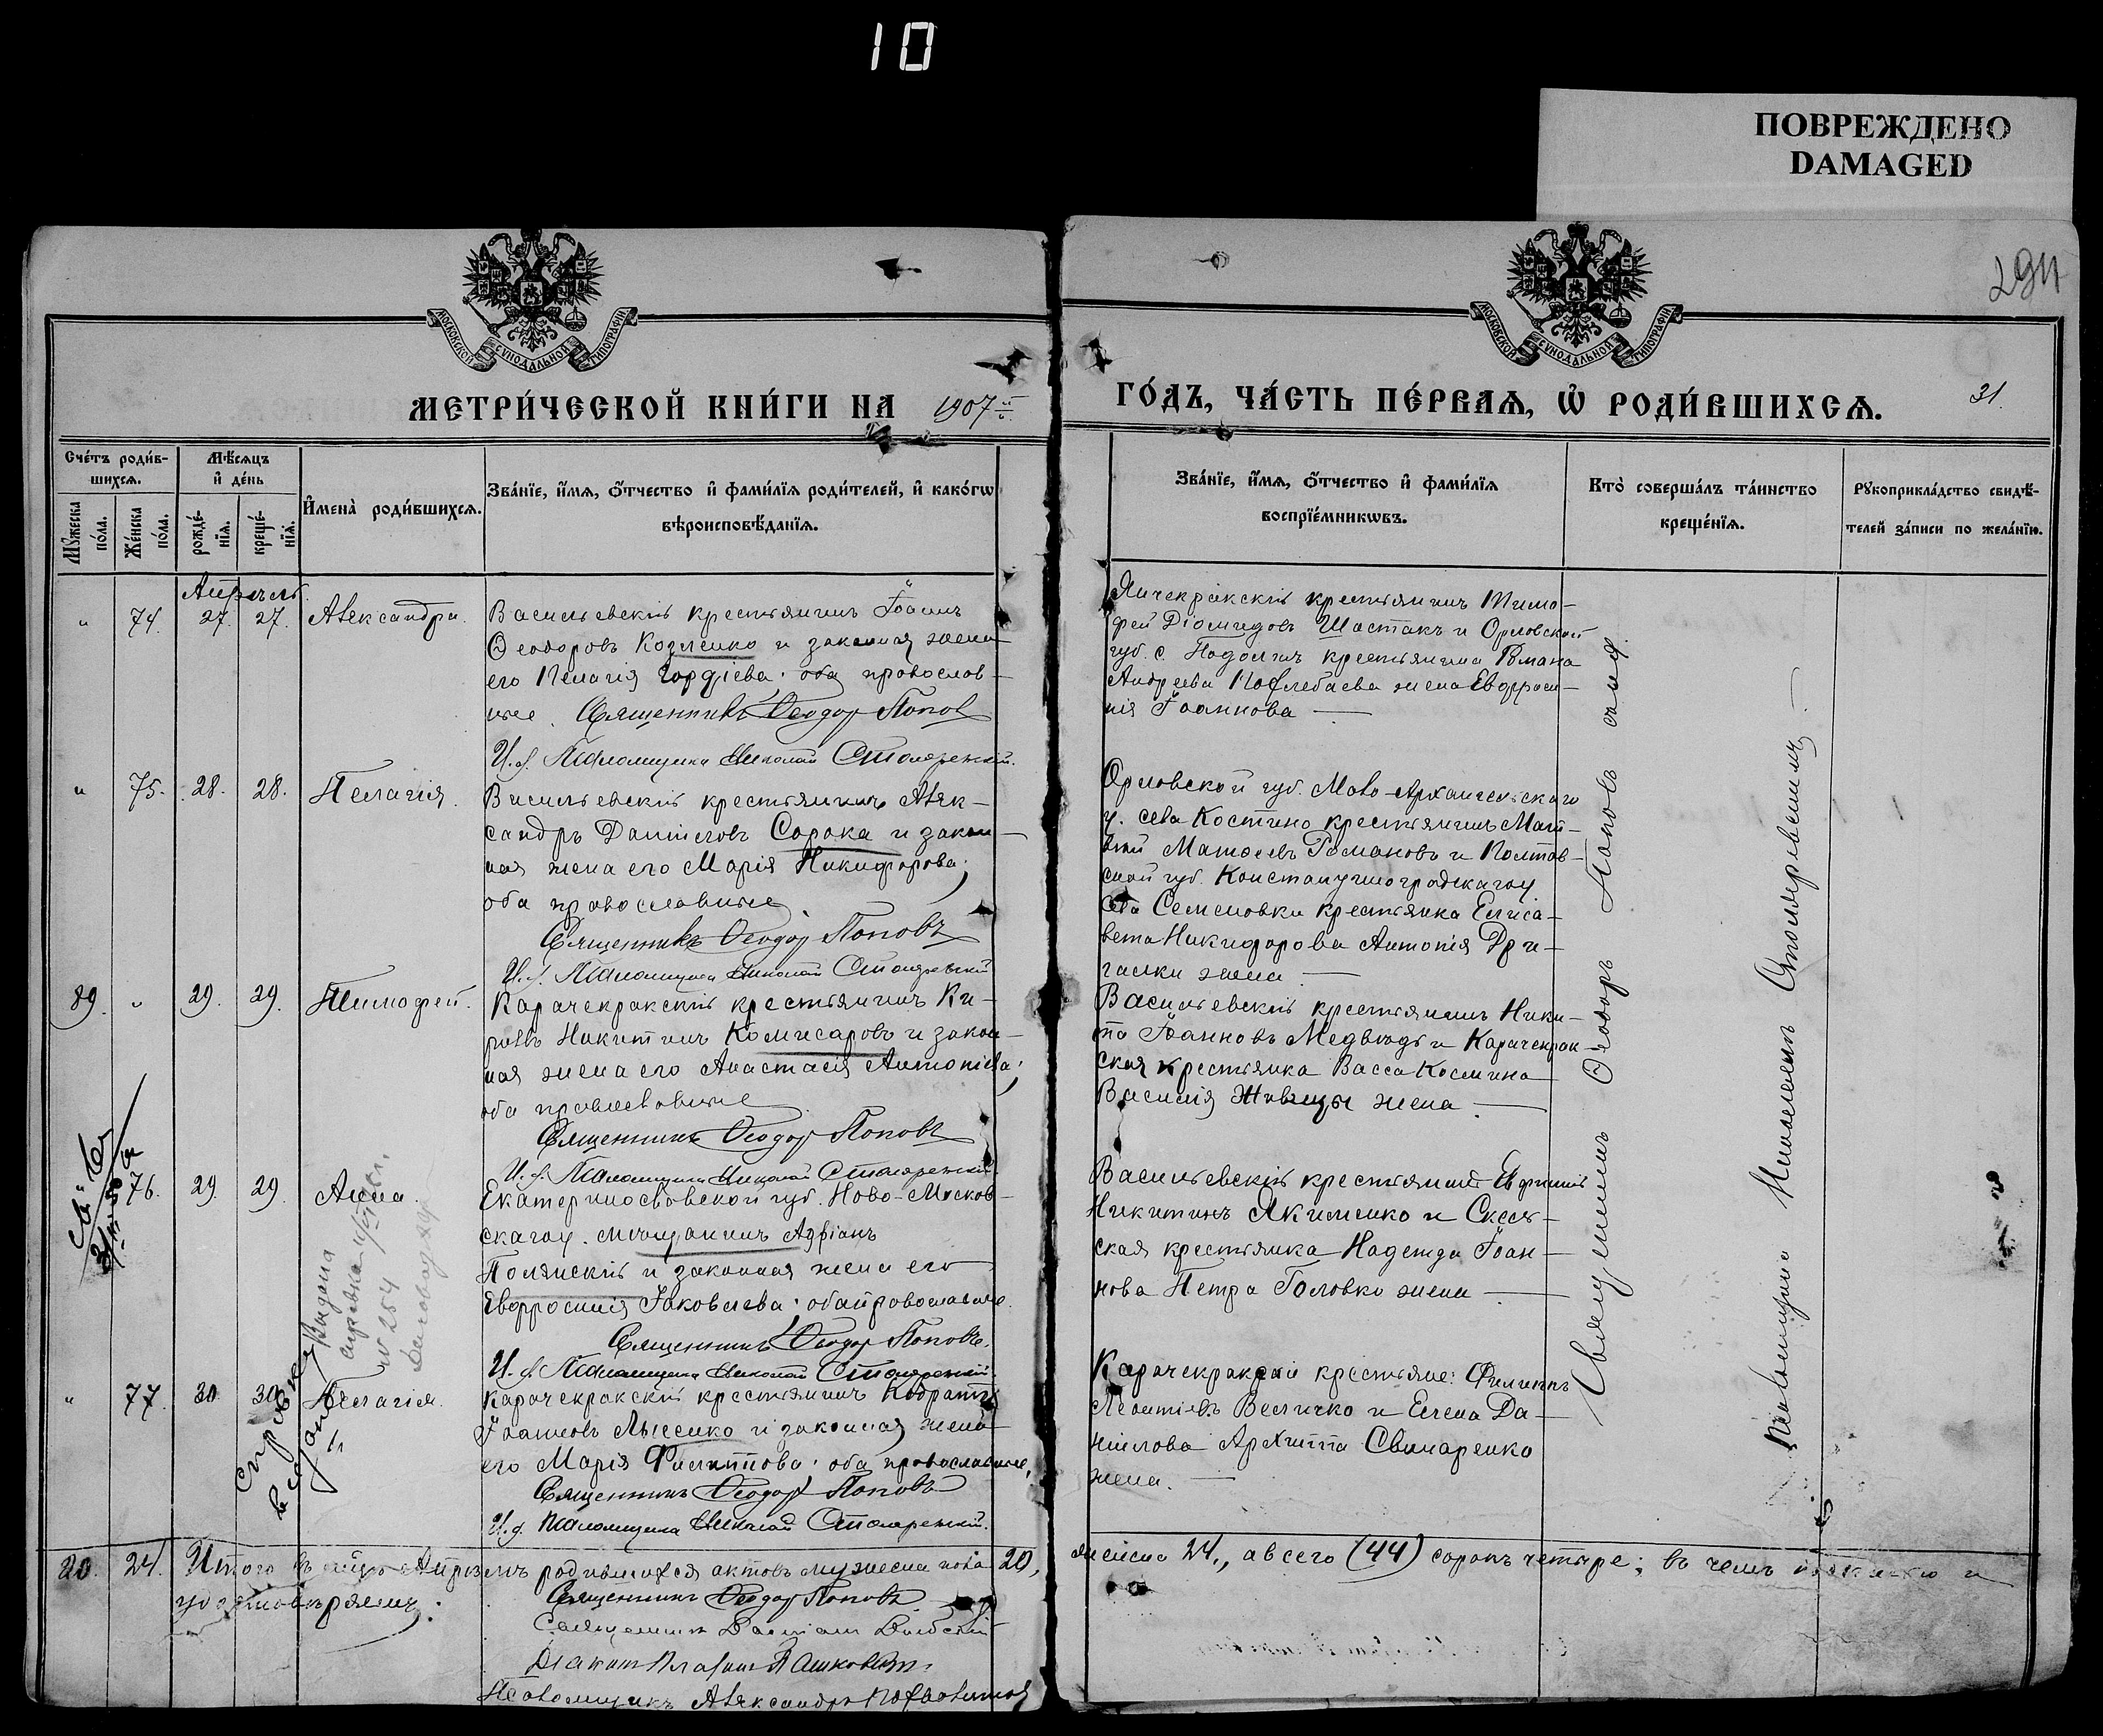 10
ПОВРЕЖДЕНО
DAMAGED
294
МОСКОВСКОЙ СУНОДАЛЬНОЙ ТИПОГРАФІИ
МОСКОВСКОЙ СУНОДАЛЬНОЙ ТИПОГРАФІИ
МЕТРИ́ЧЕСКОЙ КНИ́ГИ НА 1907
ГО́ДЪ, ЧА́СТЬ ПЕ́РВАѦ, Ѡ҆ РОДИ́ВШИХСѦ. 31.
Сче́тъ роди́в-
шихсѧ.
Мꙋ́жеска
по́ла.
Же́нска
по́ла.
Мѣ́сѧцъ
и҆ де́нь
рожде́-
нїѧ.
креще́-
нїѧ.
И҆мена̀ роди́вшихсѧ.
Зва́нїе, и҆́мѧ, ѻ҆́тчество и҆ фами́лїѧ роди́телей, и҆ како́гѡ
вѣроисповѣ́данїѧ.
Зва́нїе, и҆́мѧ, ѻ҆́тчество и҆ фами́лїѧ
воспрїе́мникѡвъ.
Кто̀ соверша́лъ та́инство
креще́нїѧ.
Рꙋкоприкла́дство свидѣ́-
телей за́писи по жела́нїю.
Апрѣль.
" 74. 27. 27. Александра.
Васильевскій крестьянинъ Іоаннъ
Ѳеодоровъ Козленко и законная жена
его Пелагія Гордіева; оба православ-
ные. Священникъ Ѳеодоръ Попов
И. д. Псаломщика Николай Столяревскій.
Янчекракскій крестьянинъ Тимо-
фей Діомидовъ Шостакъ и Орловской
губ. с. Подолянъ крестьянина Романа
Андреева Похлебаева жена Евфроси-
нія Іоаннова
" 75. 28. 28. Пелагія.
Васильевскій крестьянинъ Алек-
сандръ Даниловъ Сорока и закон-
ная жена его Марія Никифорова;
оба православные
Священникъ Ѳеодоръ Поповъ
И. д. Псаломщика Николай Столяревскій
Орловской губ. Мало-Архангельскаго
у. села Костино крестьянинъ Мат-
вей Матвеевъ Романовъ и Полтав-
ской губ. Константиноградскаго у.
села Семеновки крестьянка Елиса-
вета Никифорова Антонія Дри-
галки жена
89. " 29. 29. Тимофей.
Карачекракскій крестьянинъ Ки-
риллъ Никитинъ Комисаровъ и закон-
ная жена его Анастасія Антоніева;
оба православные
Священникъ Ѳеодоръ Поповъ
И. д. Псаломщика Николай Столяревскій.
Васильевскій крестьянинъ Ники-
та Іоанновъ Медвѣдь и Карачекрак-
ская крестьянка Васса Космина
Василія Живицы жена
76. 29. 29. Анна.
Екатеринославской губ. Ново-Москов-
скаго у. мѣщанинъ Адріанъ
Полянскій и законная жена его
Евфросинія Іаковлева; оба православные.
Священникъ Ѳеодоръ Поповъ.
И. д. Псаломщика Николай Столяревскій.
Васильевскій крестьянинъ Евфимій
Никитинъ Якименко и Скель-
ская крестьянка Надежда Іоан-
нова Петра Головко жена
Выдана
справка
№ 254
справка
выдана
" 77. 30. 30. Пелагія.
Карачекракскій крестьянинъ Кодратъ
Іоанновъ Лысенко и законная жена
его Марія Филиппова; оба православные,
Священникъ Ѳеодоръ Поповъ
И. д. Псаломщика Николай Столяревскій.
Карачекракскіи крестьяне: Филиппъ
Леонтіевъ Величко и Елена Да-
ніилова Архиппа Свинаренко
жена.
Священникъ Ѳеодоръ Поповъ съ и. д.
Псаломщика Николаемъ Столяревскимъ.
20. 24. Итого въ м-цѣ Апрѣлѣ родившихся актовъ мужеска пола 20, женска 24., а всего (44) сорокъ четыре; въ чемъ и
удостовѣряемъ:
Священникъ Ѳеодоръ Поповъ
Священникъ
Діаконъ
Псаломщикъ Александръ